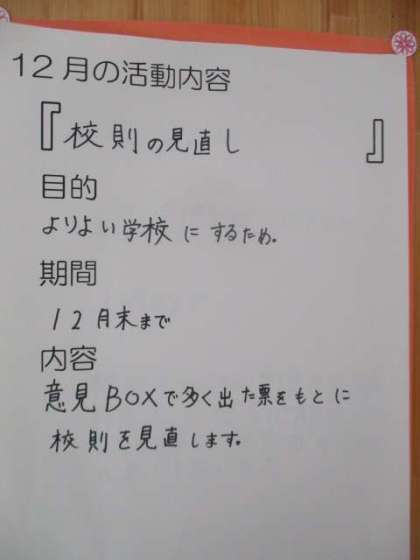 12月の活動内容
『校則の見直し』
目的
よりよい学校にするため。
期間
12月末まで
内容
意見BOXで多く出た票をもとに
校則を見直します。